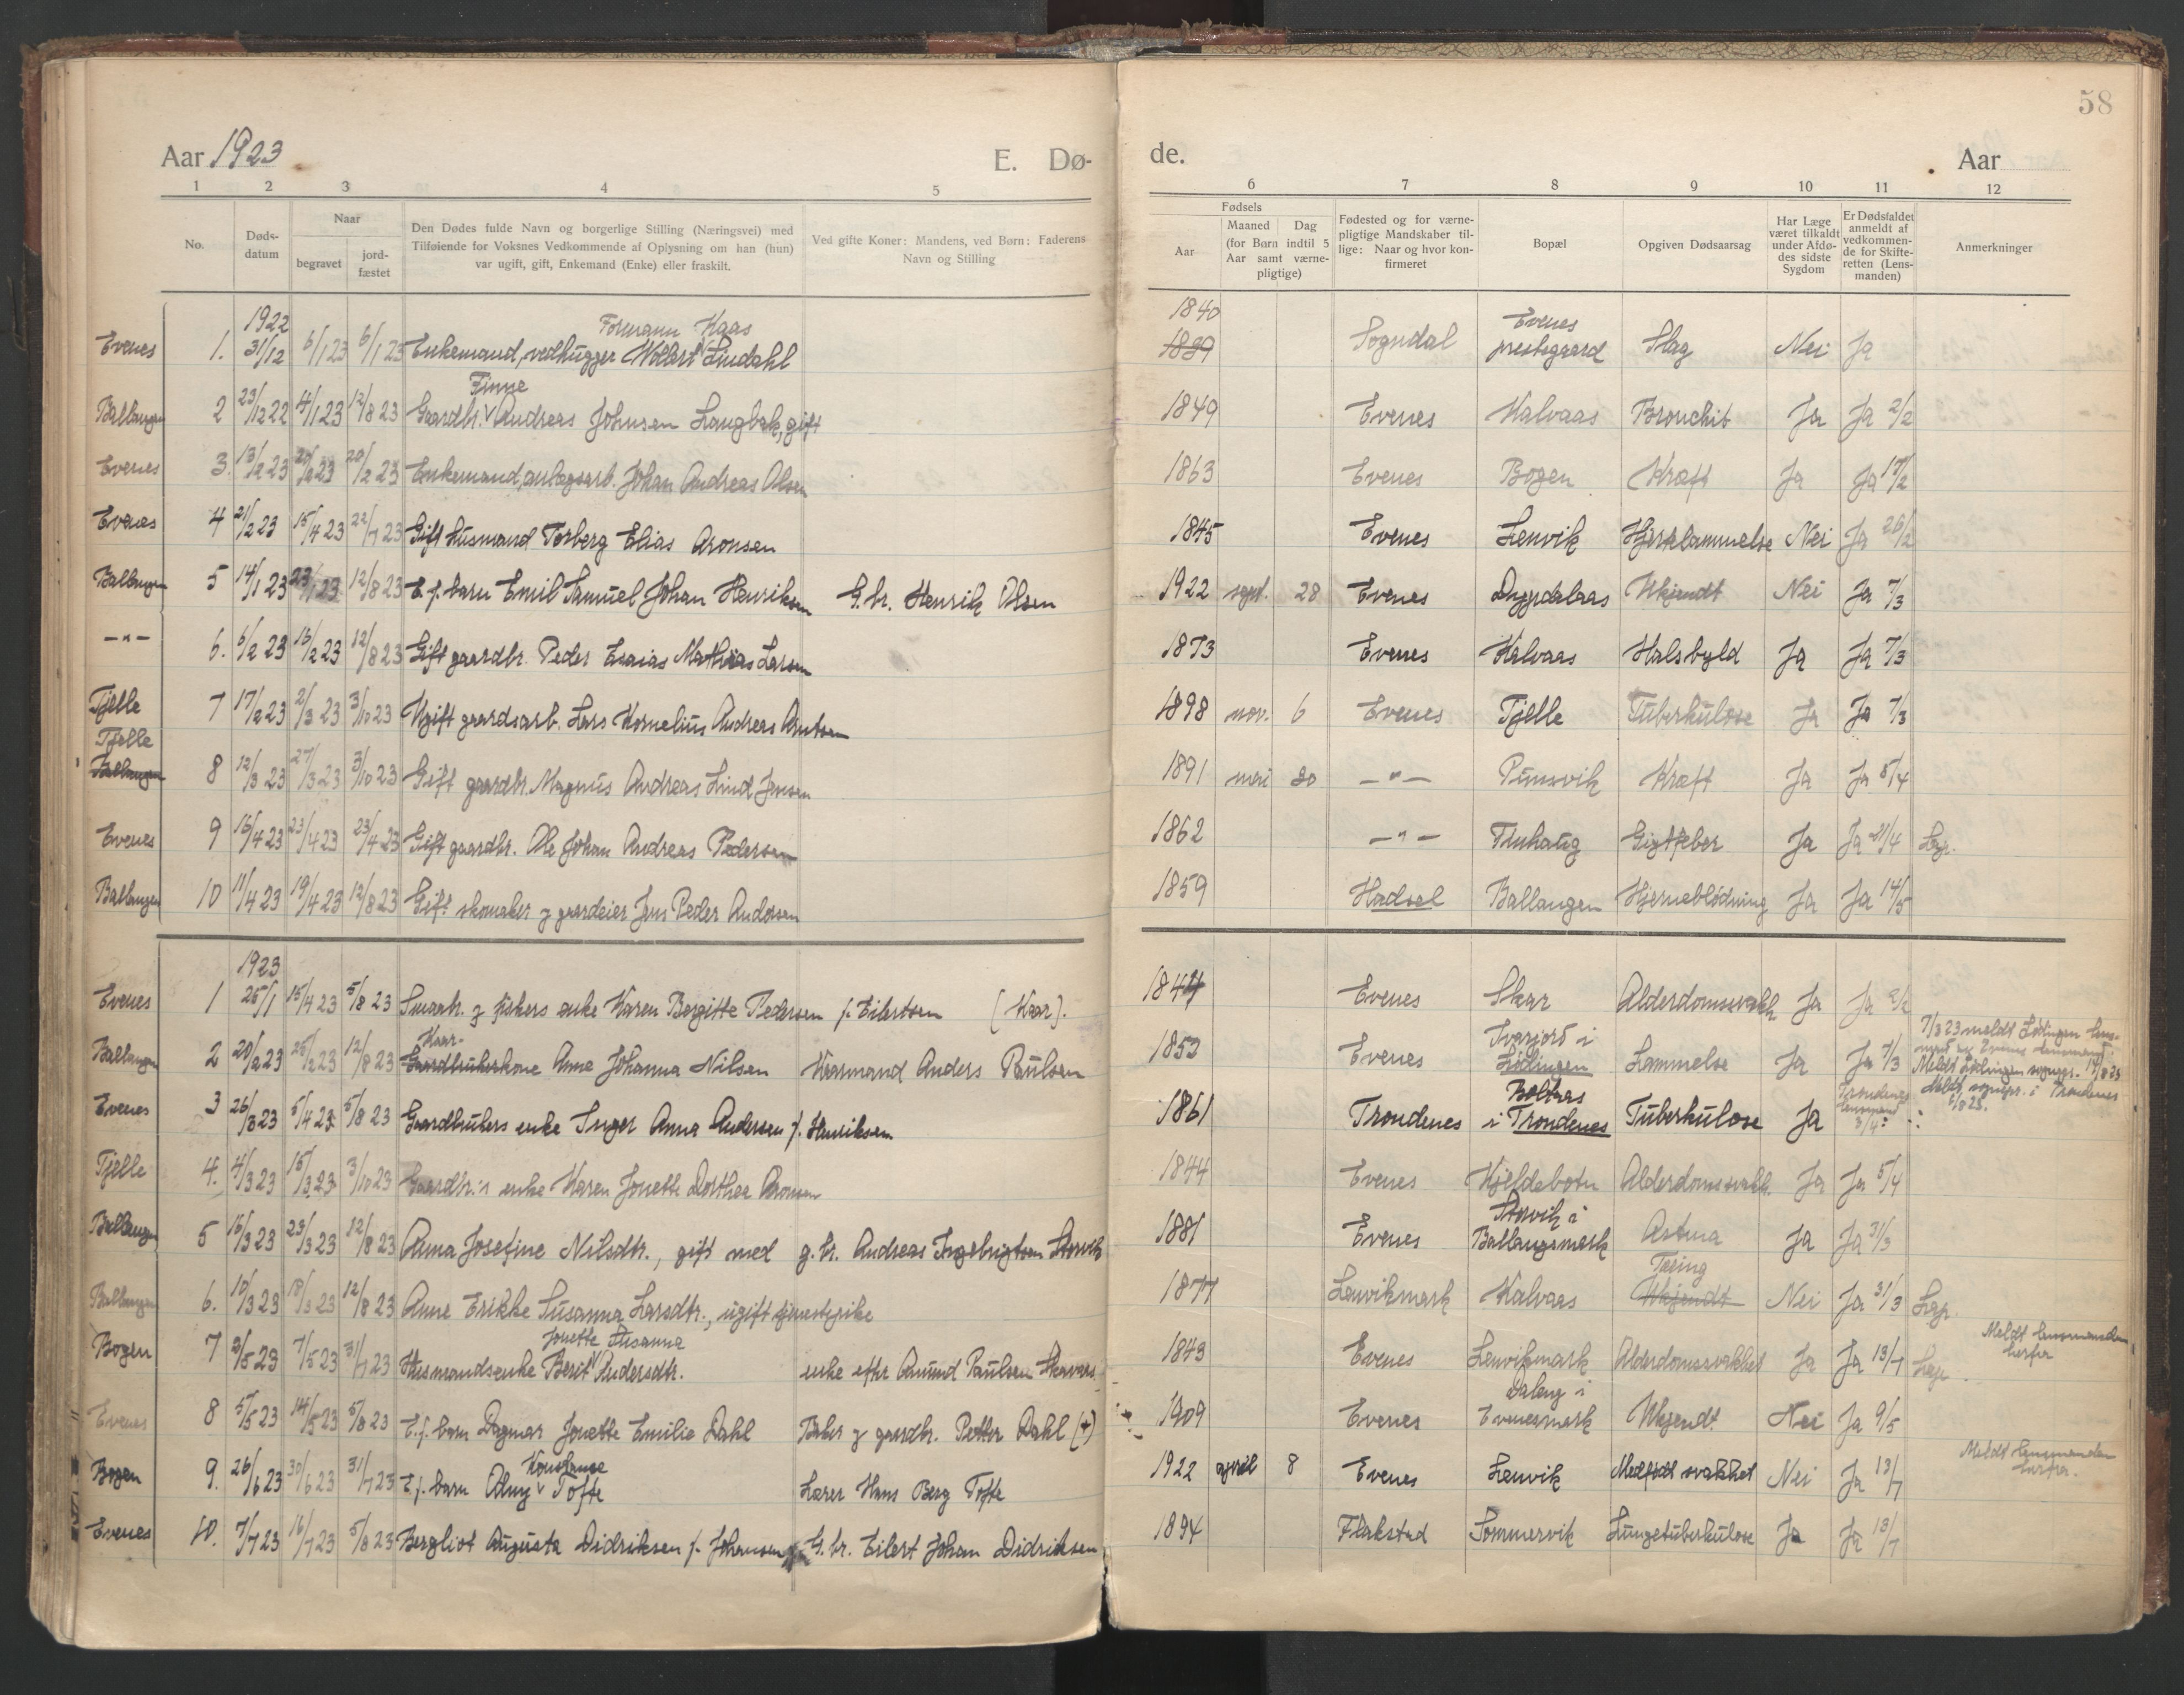 58
Aar 1923 E. Dø- de. Aar
1 2 3 4 5 6 7 8 9 10 11 12
No. Døds-datum Naar begravet jord-fæstet Den Dødes fulde Navn og borgerlige Stilling (Næringsvei) med Tilføiende for Voksnes Vedkommende af Oplysning om han (hun) var ugift, gift, Enkemand (Enke) eller fraskilt. Ved gifte Koner: Mandens, ved Børn: Faderens Navn og Stilling Fødsels Aar Maaned Dag (for Børn indtil 5 Aar samt værne-pligtige) Fødested og for værne-pligtige Mandskaber til-lige: Naar og hvor kon-firmeret Bopæl Opgiven Dødsaarsag Har Læge været tilkaldt under Afdø-des sidste Sygdom Er Dødsfaldet anmeldt af vedkommen-de for Skifte-retten (Lens-manden) Anmerkninger
1922 Formann Haas 1840 Evenes
Evenes 1. 31/12 6/1 23 6/1 23 Enkemand, vedhugger Wollert Lindahl 1839 Sogndal prestegaard Slag Nei Ja
Finne
Ballangen 2 23/12 22 4/1 23 12/8 23 Gaardbr. Andreas Johnsen Langbak, gift 1849 Evenes Kalvaas Bronchit Ja Ja 2/2
Evenes 3. 13/2 23 20/2 23 20/2 23 Enkemand, anlægsarb. Johan Andreas Olsen 1863 Evenes Bogen Kræft Ja Ja 17/2
Evenes 4 21/2 23 15/4 23 22/7 23 Gift husmand Torberg Elias Aronsen 1845 Evenes Lenvik Hjertelammelse Nei Ja 26/2
Ballangen 5 14/1 23 23/1 23 12/8 23 E.f. barn Emil Samuel Johan Henriksen G.br. Henrik Olsen 1922 sept. 28 Evenes Djupdalaas Ukjendt Nei Ja 7/3
—"— 6. 6/2 23 16/2 23 12/8 23 Gift gaardbr. Peder Esaias Mathias Larsen 1873 Evenes Kalvaas Halsbyld Ja Ja 7/3
Tjelle 7 17/2 23 2/3 23 3/10 23 Ugift gaardsarb. Lars Kornelius Andreas Arntsen 1898 nov. 6 Evenes Tjelle Tuberkulose Ja Ja 7/3
Tjelle
Ballangen 8 12/3 23 27/3 23 3/10 23 Gift gaardbr. Magnus Andreas Lind Jensen 1891 mai 20 —"— Pumsvik Kræft Ja Ja 5/4
Evenes 9 16/4 23 23/4 23 23/4 23 Gift gaardbr. Ole Johan Andreas Pedersen 1862 —"— Tuhaug Gigtfeber Ja Ja 21/4 Lap.
Ballangen 10 11/4 23 19/4 23 12/8 23 Gift skomaker og gaardeier Jens Peder Andersen 1859 Hadsel Ballangen Hjerneblødning Ja Ja 14/5
1923
Evenes 1 25/1 15/4 23 5/8 23 Smaabr. og fiskers enke Karen Bergitte Pedersen f. Eilertsen (Kar). 1844 Evenes Skar Alderdomssvakh. Ja Ja
Kaar- Tvarfjord i 7/3 23 meldt Lødingen
Ballangen 2 20/2 23 25/2 23 12/8 23 Gaardbrukerkone Anne Johanna Nilsen Kaarmand Anders Paulsen 1853 Evenes Lødingen Lammelse Ja Ja 7/3 Meldt Lødingen sognepr. 14/8 23
Boltaas Trondenes lensmand 3/4 Meldt sognepr. i Trondenes
Evenes 3 26/3 23 5/4 23 5/8 23 Gaardbrukers enke Inger Anna Andersen f. Henriksen 1861 Trondenes i Trondenes Tuberkulose Ja
Tjelle 4. 4/3 23 15/3 23 3/10 23 Gaardbr.s enke Karen Jonette Dorthea Aronsen 1844 Evenes Kjeldebotn Alderdomssvakh. Ja Ja 5/4
Storvik i
Ballangen 5 16/3 23 23/3 23 12/8 23 Anna Josefine Nilsdtr., gift med g.br. Andreas Ingebrigtsen Storvik 1881 Evenes Ballangsmark Astma Ja Ja 31/3
Tæring
Ballangen 6. 10/3 23 18/3 23 12/8 23 Anne Erikke Susanna Larsdtr., ugift tjenestepike 1877 Lenvikmark Kalvaas Ukjendt Nei Ja 31/3 Lap.
Jonette Susanna Meldt lensmanden herfra
Bogen 7 3/5 23 7/5 23 31/7 23 Husmandsenke Berit Andersdtr. enke efter Amund Paulsen 1843 Evenes Lenvikmark Alderdomssvakhet Ja Ja 13/7 Lap.
Daleng i
Evenes 8 5/5 23 14/5 23 5/8 23 E.f. barn Dagmar Jonette Emilie Dahl Baker og gaardbr. Petter Dahl (+) 1909 Evenes Evenesmark Ukjendt Nei Ja 9/5
Konstanse Meldt lensmanden herfra.
Bogen 9. 26/6 23 30/6 23 31/7 23 E.f. barn Odny Tofte Lærer Hans Berg Tofte 1922 april 8 Evenes Lenvik Medfødt svakhet Nei Ja 13/7
Evenes 10. 7/7 23 16/7 23 5/8 23 Bergliot Augusta Didriksen f. Johansen G.br. Eilert Johan Didriksen 1894 Flakstad Sommervik Lungetuberkulose Ja Ja 13/7